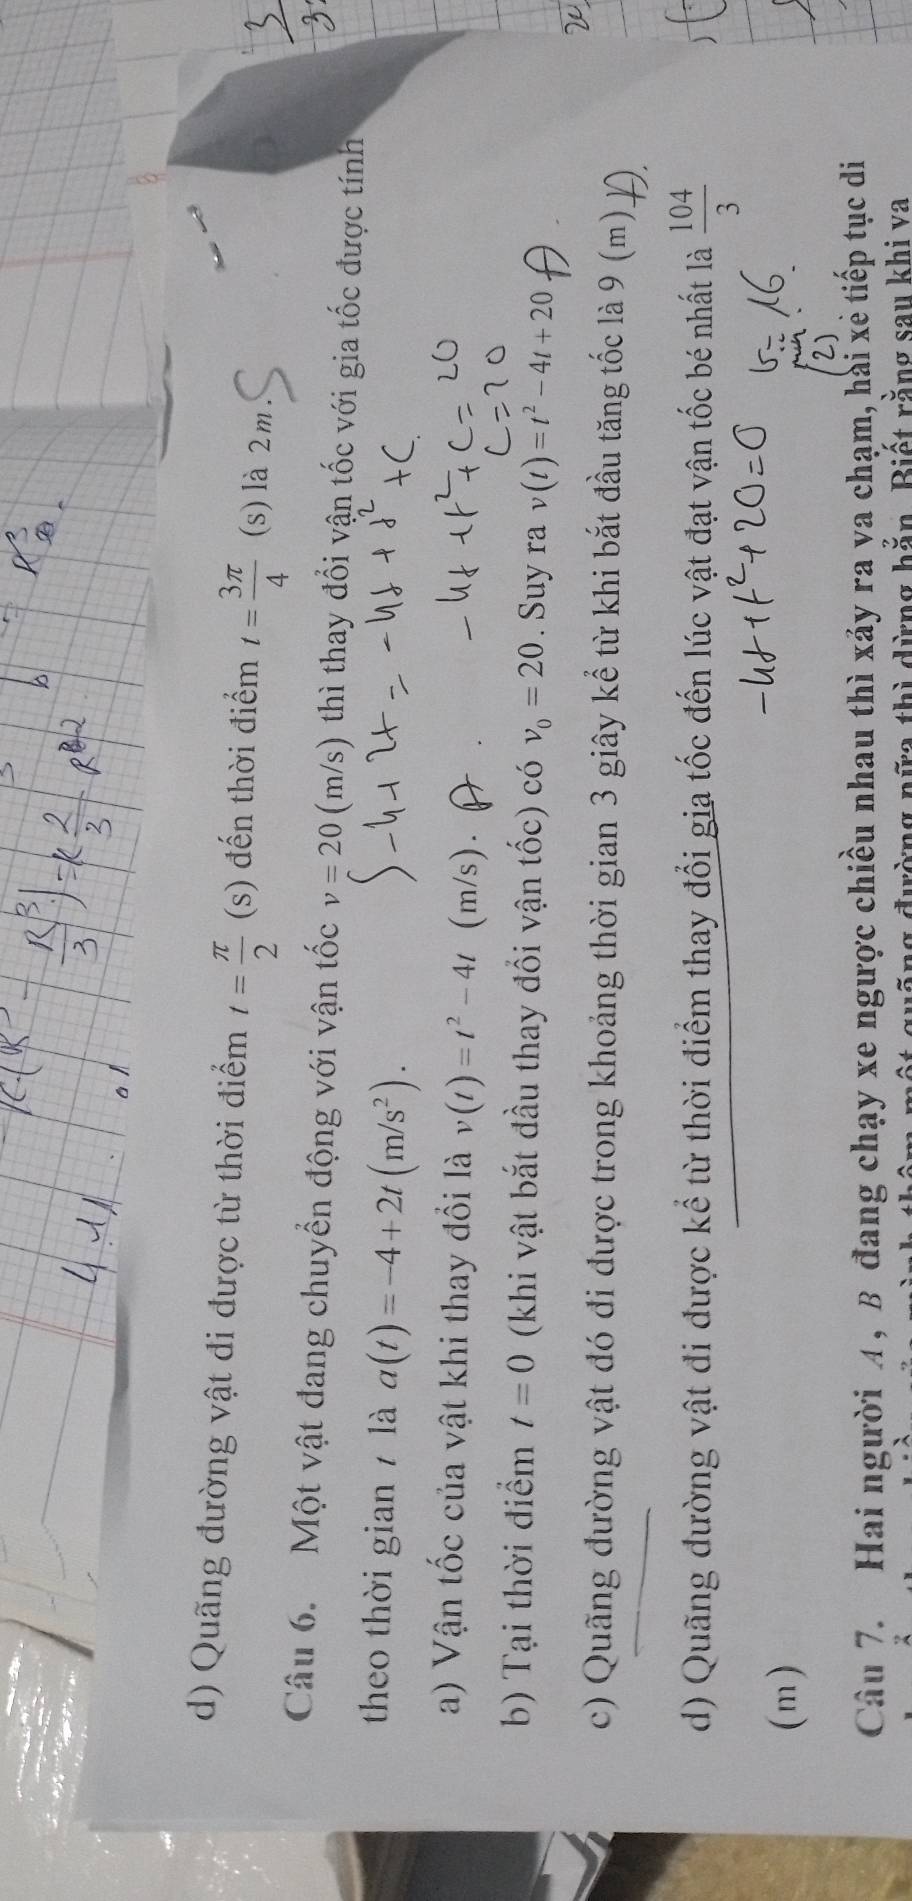 4.11
d) Quãng đường vật đi được từ thời điểm t = π/2 (s) đến thời điểm t = 3π/4 (s) là 2m. S
Câu 6. Một vật đang chuyển động với vận tốc v = 20 (m/s) thì thay đổi vận tốc với gia tốc được tính
theo thời gian t là a(t) = −4 + 2t (m/s²).
∫ -4+2t = -4t + t² + C.
a) Vận tốc của vật khi thay đổi là v(t) = t² − 4t (m/s).
-4t + t² + C = 20
C = 20
b) Tại thời điểm t = 0 (khi vật bắt đầu thay đổi vận tốc) có v₀ = 20. Suy ra v(t) = t² − 4t + 20
c) Quãng đường vật đó đi được trong khoảng thời gian 3 giây kể từ khi bắt đầu tăng tốc là 9 (m)
d) Quãng đường vật đi được kể từ thời điểm thay đổi gia tốc đến lúc vật đạt vận tốc bé nhất là 104/3
-4t + t² + 20 = 0
min
(2)
= 16.
(m)
Câu 7. Hai người A, B đang chạy xe ngược chiều nhau thì xảy ra va chạm, hai xe tiếp tục di
một quãng đường nữa thì dừng hẳn. Biết rằng sau khi va